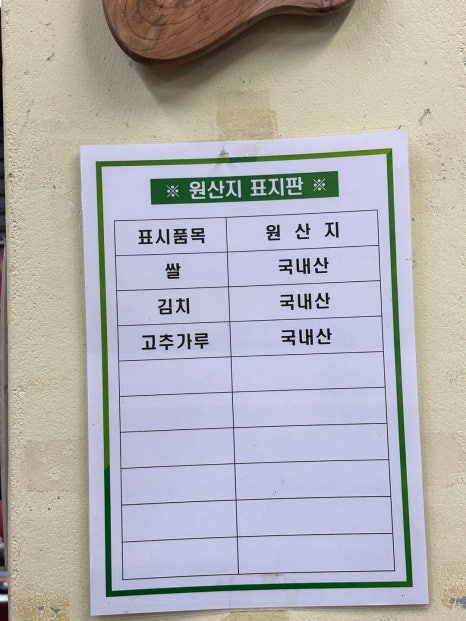 ※ 원산지 표지판 ※
표시품목 원 산 지
쌀 국내산
김치 국내산
고추가루 국내산